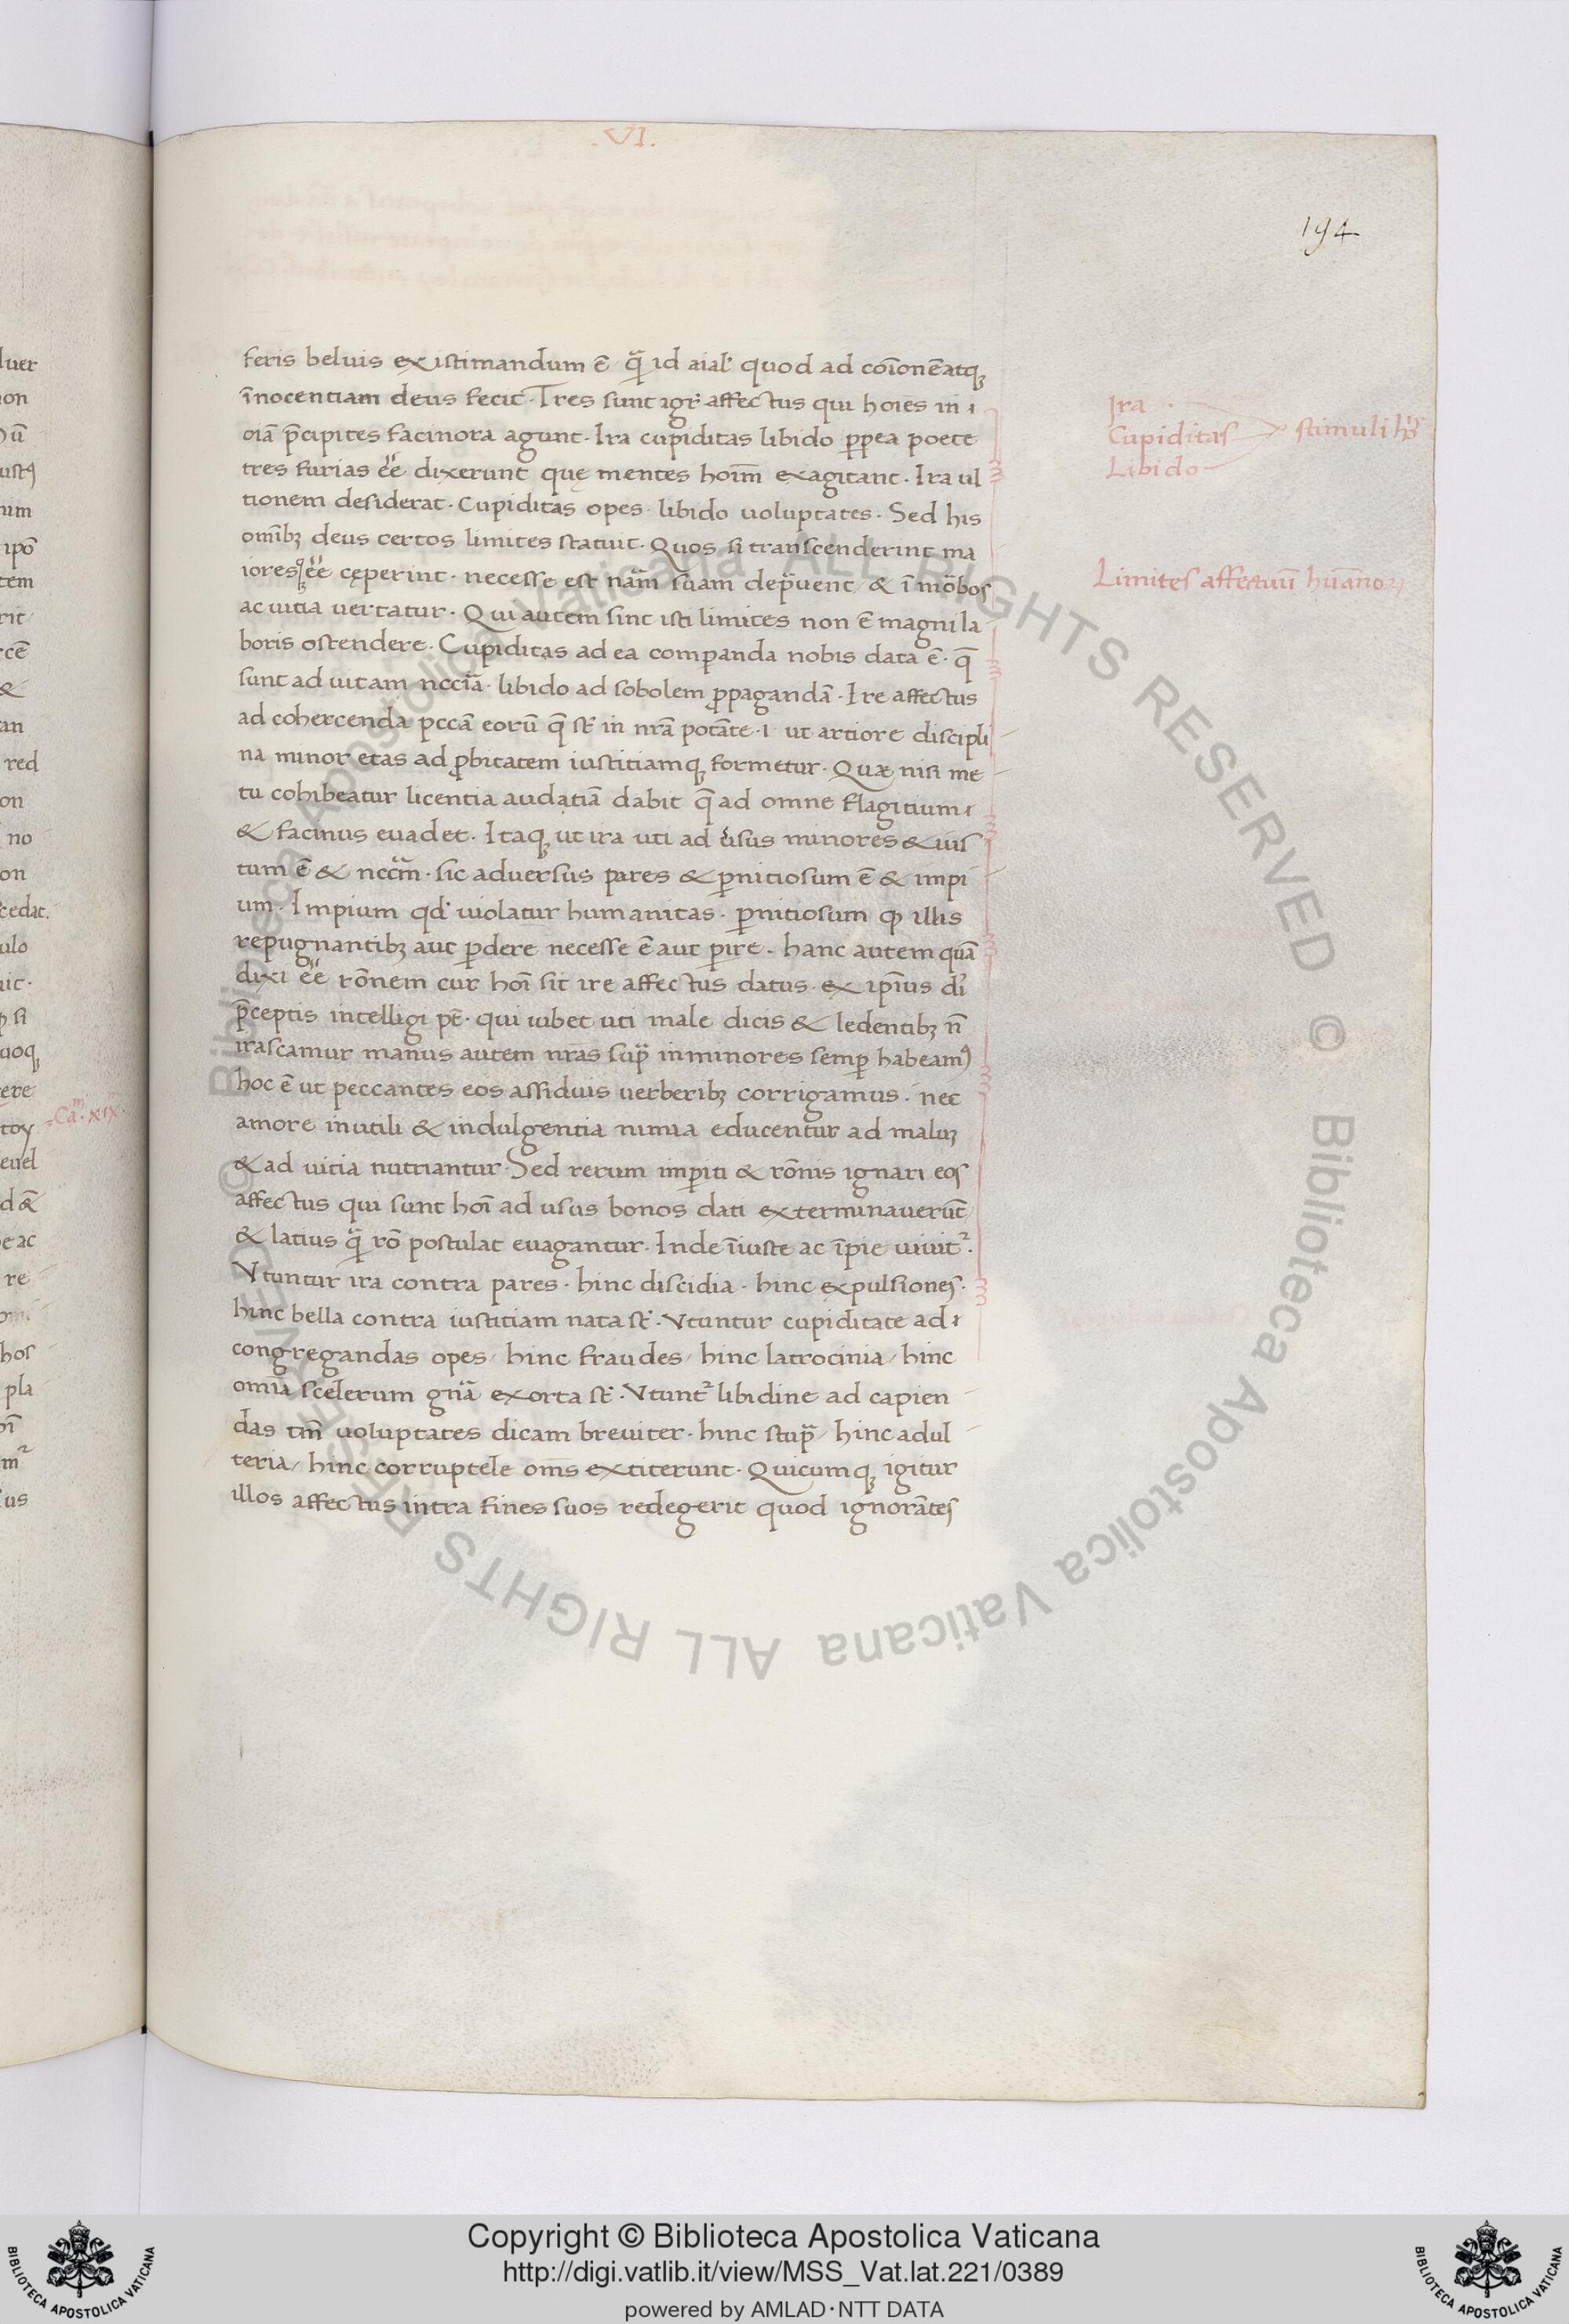 .VI.
194
feris beluis existimandum ē / q̄ id aial' quod ad cōionē atq;
īnocentiam deus fecit · Tres sunt igr̄ affectus qui hoīes in ı
oīa p̄cipites facinora agunt · Ira cupiditas libido ꝓpea poete
tres furias ēē dixerunt quę mentes hoīm exagitant · Ira ul
tionem desiderat · Cupiditas opes · libido uoluptates · Sed his
omībꝫ deus certos limites statuit · Quos si transcenderint ma
ioresqꝫ ēē cęperint · necesse est nām suam dep̄uent / & ī mōbos
ac uitia uertatur · Qui autem sint isti limites non ē magni la
boris ostendere · Cupiditas ad ea comꝑanda nobis data ē · q̄
sunt ad uitam nccīa · libido ad sobolem ꝓpagandā · Ire affectus
ad cohercenda pccā eorū q̄ st̄ in nrā potāte · ı ut artiore discipli
na minor etas ad ꝓbitatem iustitiamqꝫ formetur · Quæ nisi me
tu cohibeatur licentia audatiā dabit q̄ ad omne flagitium ı
& facinus euadet · Itaqꝫ ut ira uti ad űsus minores & ius
tum ē & nccm̄ · sic aduersus pares & ꝑnitiosum ē & impi
um · Impium qd' uiolatur humanitas · ꝑnitiosum ꝙ illis
repugnantibꝫ aut ꝑdere necesse ē aut ꝑire · hanc autem quā
dixi ēē rōnem cur hoī sit ire affectus datus · ex ipīus dī
p̄ceptis intelligi pt̄ · qui iubet uti male dicis & ledentibꝫ n̄
irascamur manus autem nrās suꝑ in minores semꝑ habeamꝰ
hoc ē ut peccantes eos assiduis uerberibꝫ corrigamus · nec
amore inutili & indulgentia nimia educentur ad malūꝫ
& ad uitia nutriantur · Sed rerum imꝑiti & rōnis ignari eos
affectus qui sunt hoī ad usus bonos dati exterminauerūt
& latius q̄ rō postulat euagantur · Inde īiuste ac īpie uiuit̄ ·
Vtuntur ira contra pares · hinc discidia · hinc expulsiones ·
hinc bella contra iustitiam nata st̄ · Vtuntur cupiditate ad ı
congregandas opes / hinc fraudes / hinc latrocinia / hinc
omīa scelerum gnā exorta st̄ · Vtunt̄ libidine ad capien
das tm̄ uoluptates dicam breuiter · hinc stup̄ / hinc adul
teria / hinc corruptele om̄s extiterunt · Quicumqꝫ igitur
illos affectus intra fines suos redegerit quod ignorātes
Ira
Cupiditas
Libido
stimuli
Limites affectuū hūanoꝝ
Ca. XIX.
Biblioteca Apostolica Vaticana ALL RIGHTS RESERVED ©
Copyright © Biblioteca Apostolica Vaticana
http://digi.vatlib.it/view/MSS_Vat.lat.221/0389
powered by AMLAD · NTT DATA
BIBLIOTECA APOSTOLICA VATICANA
BIBLIOTECA APOSTOLICA VATICANA